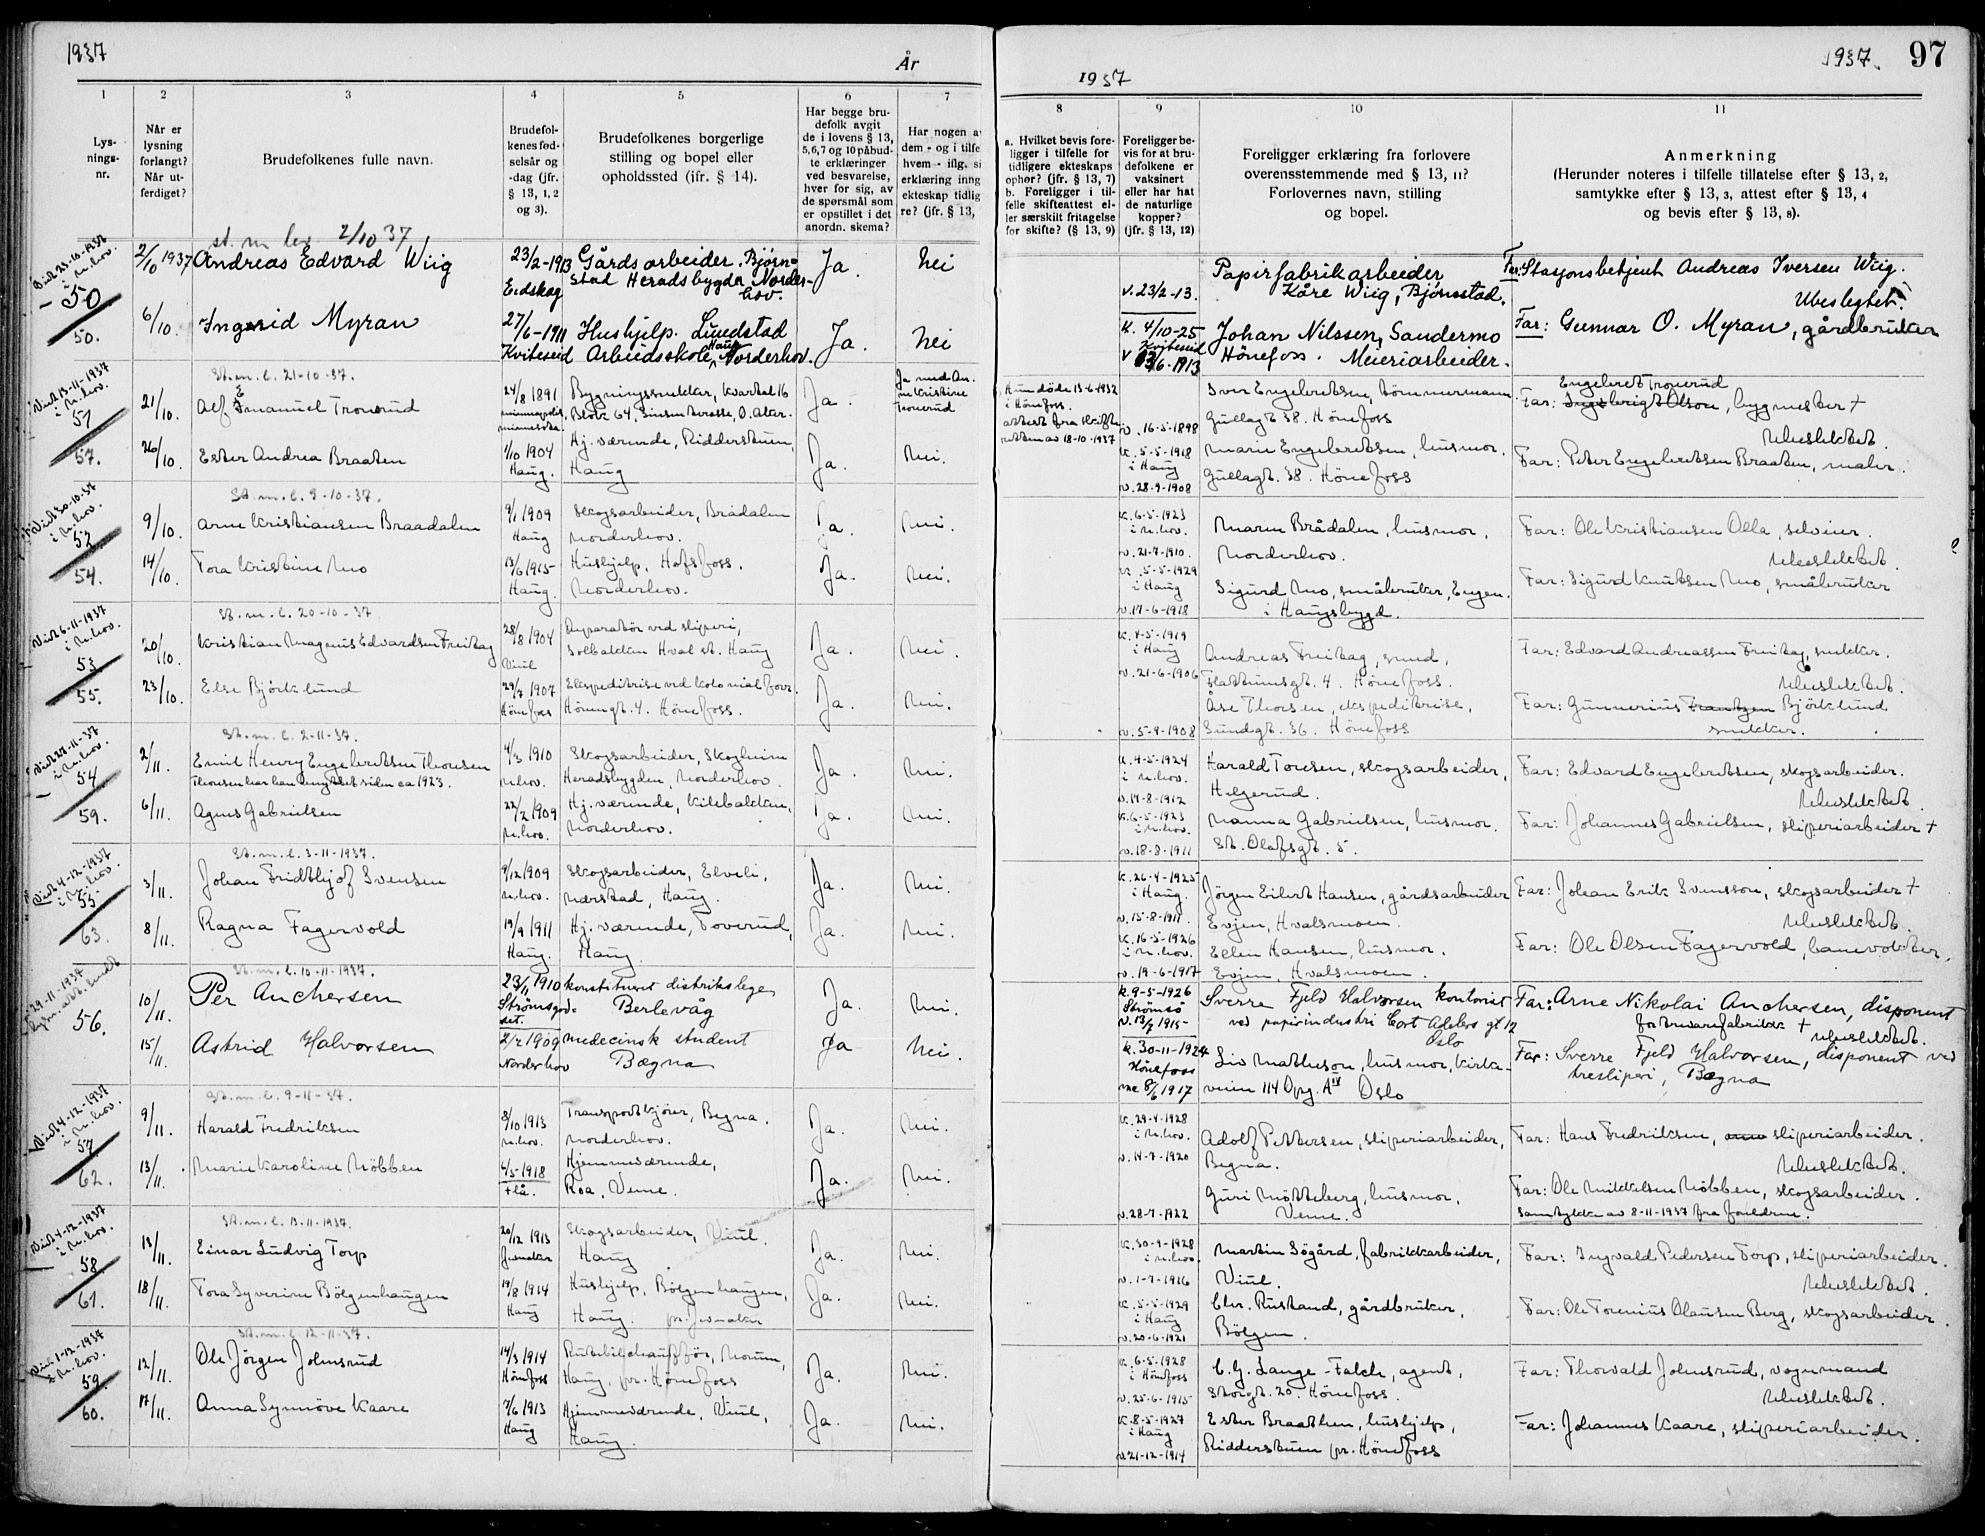 1937
År
1937
1937.
97
1
2
3
4
5
6
7
8
9
10
11
Lysnings-nr.
Når er lysning forlangt? Når utferdiget?
Brudefolkenes fulle navn.
Brudefolkenes fødselsår og -dag (jfr. § 13, 1, 2 og 3).
Brudefolkenes borgerlige stilling og bopel eller opholdssted (jfr. § 14).
Har begge brudefolk avgit de i lovens § 13, 5, 6, 7 og 10 påbudte erklæringer ved besvarelse, hver for sig, av de spørsmål som er opstillet i det anordn. skema?
Har nogen a
dem - og i tilfe
hvem - iflg. si
erklæring inng
ekteskap tidlig
re? (jfr. § 13,
a. Hvilket bevis foreligger i tilfelle for tidligere ekteskaps ophør? (jfr. § 13, 7)
b. Foreligger i tilfelle skifteattest eller særskilt fritagelse for skifte? (§ 13, 9)
Foreligger bevis for at brudefolkene er vaksinert eller har hat de naturlige kopper? (jfr. § 13, 12)
Foreligger erklæring fra forlovere overensstemmende med § 13, 11? Forlovernes navn, stilling og bopel.
Anmerkning
(Herunder noteres i tilfelle tillatelse efter § 13, 2, samtykke efter § 13, 3, attest efter § 13, 4 og bevis efter § 13, 8).
st. m. lev 2/10 37
Viet 23-10-1937 i N.hov.
50
2/10 1937 Andreas Edvard Wiig
23/2-1913 Eidskog
Gårdsarbeider, Bjørnstad Heradsbygda Norderhov.
Ja. Nei
v. 23/2-13.
Papirfabrikarbeider Kåre Wiig, Bjørnstad.
Far: Stasjonsbetjent Andreas Iversen Wiig.
Ubeslegtet.
50.
6/10. Ingerid Myran
27/6-1911 Kviteseid
Hushjelp. Lundstad Arbeidsskole, Haug Norderhov.
Ja. Nei
K. 4/10-25 Kviteseid
v 13/6-1913
Johan Nilssen, Sandermo Hønefoss. Meieriarbeider.
Far: Gunnar O. Myran, gårdbruker
St. m. l. 21-10-37.
Viet 13-11-1937 i N.hov.
51
21/10. Alf Emanuel Tronrud
24/8 1891 minneapolis, minnesota.
Bygningssnekker, Kvartal 16 Blokk 64, Sinsen terrasse, O. Aker.
Ja.
Ja med Anna Kristine Tronrud
Hun døde 13-6-1932 i Hönefoss.
attest fra skifteretten av 18-10-1937
v. 16-5-1898
Iver Engebretsen, tömmermann. Gullagt. 38. Hönefoss
Engebret Tronrud
Far: Ingebrigt Olson, bygmester +
Ubeslektet.
57.
26/10. Ester Andrea Braaten
1/10 1904 Haug.
Hj. værende, Ridderstuen, Haug
Ja. Nei.
K. 5-5-1918 i Haug
v. 28-9-1908
Marie Engebretsen, husmor. Gullagt. 38. Hönefoss
Far: Peter Engebretsen Braaten, maler.
St. m. l. 9-10-37.
Viet 30-10-37 i N.hov.
52
9/10. Arne Kristiansen Braadalen
9/1 1909 Haug
Skogsarbeider, Brådalen Norderhov.
Ja. Nei.
K. 6-5-1923 i N.hov.
v. 21-7-1910.
Maren Brådalen, husmor, Norderhov.
Far: Ole Kristiansen Olla, selveier.
Ubeslektet.
54.
14/10. Tora Kristine Mo
13/6 1915 Haug.
Hushjelp, Hofsfoss, Norderhov.
Ja. Nei.
K. 5-5-1929 i Haug
v. 17-6-1918
Sigurd Mo, småbruker, Engen. i Haugsbygd.
Far: Sigurd Knutsen Mo, småbruker
St. m. l. 20-10-37
Viet 6-11-1937 i N.hov.
53
20/10. Kristian Magnus Edvardsen Freitag
28/8 1904 Viul
Reparatör ved sliperi, Solbakken Hval st. Haug
Ja. Nei.
K. 4-5-1919 i Haug
v. 21-6-1906
Andreas Freitag, smed, Flattumsgt. 4. Hönefoss.
Far: Edvard Andreassen Freitag, snekker.
Ubeslektet.
55.
23/10. Else Björklund
29/7 1907 Hönefoss
Ekspeditrise ved kolonialforr. Hönengt. 4. Hönefoss.
Ja. Nei.
v. 5-9-1908
Åse Thorsen, ekspeditrise, Sundgt. 36. Hönefoss
Far: Gunnerius Frantzen Björklund snekker.
St. m. l. 2-11-37.
Viet 27-11-37 i N.hov.
54
2/11. Emil Henry Engebretsen Thoresen
Thoresen har han benyttet siden ca 1923.
4/3 1910 N.hov.
Skogsarbeider, Skogheim Heradsbygden, Norderhov.
Ja. Nei.
K. 4-5-1924 i N.hov.
v. 14-8-1912
Harald Toresen, skogsarbeider, Helgerud.
Far: Edvard Engebretsen, skogsarbeider.
Ubeslektet.
59.
6/11. Agnes Gabrielsen
22/2 1909 N.hov.
Hj. værende, Kilebakken, Norderhov.
Ja. Nei.
K. 6-5-1923 i N.hov.
v. 18-8-1911
Nanna Gabrielsen, husmor. St. Olafsgt. 5.
Far: Johannes Gabrielsen, sliperiarbeider +
St. m. l. 3-11-1937.
Viet 4-12-1937 i N.hov.
55
3/11. Johan Fridthjof Svensen
9/12 1909 N.hov.
Skogsarbeider, Elveli, Nærstad, Haug.
Ja. Nei.
K. 26-4-1925 i Haug.
v. 15-8-1911.
Jörgen Eilert Hansen, gårdsarbeider Evjen, Hvalsmoen.
Far: Johan Erik Svensson, skogsarbeider +
Ubeslektet.
63.
8/11. Ragna Fagervold
19/9 1911 Haug.
Hj. værende, Toverud, Haug.
Ja. Nei.
K. 16-5-1926 i N.hov.
v. 19-6-1917
Ellen Hansen, husmor. Evjen, Hvalsmoen.
Far: Ole Olsen Fagervold, banevokter.
St. m. l. 10-11-1937.
29-11-1937 lysn. att. sendt
56.
10/11. Per Anchersen
23/11 1910 Strömsgodset.
konstituert distrikslege Berlevåg
Ja. Nei.
K. 9-5-1926 Strömsö
v. 13/7 1915
Sverre Fjeld Halvorsen kontorist ved papirindustri Cort Adelers gt 12 Oslo
Far: Arne Nikolai Anchersen, disponent for trevarefabrikk +
Ubeslektet.
15/11. Astrid Halvorsen
2/2 1909 Norderhov
medecinsk student Bægna
Ja Nei.
K. 30-11-1924 Hönefoss
8/6 1917
Liv Matheson, husmor, Kirkeveien 114 Opg. A IV Oslo
Far: Sverre Fjeld Halvorsen, disponent ved tresliperi, Bægna
St. m. l. 9-11-37.
Viet 4-12-1937 i N.hov.
57
9/11. Harald Fredriksen
8/10 1913 N.hov.
Transportkjörer, Begna. Norderhov.
Ja. Nei.
K. 29-4-1928 i N.hov.
v. 14-7-1920
Adolf Pettersen, sliperiarbeider, Begna.
Far: Hans Fredriksen, sliperiarbeider.
Ubeslektet.
62.
13/11. Marie Karoline Möbben
6/5 1918 Flå.
Hjemmeværende, Roa, Veme.
Ja. Nei.
v. 28-7-1922
Guri Mökkeberg, husmor. Veme.
Far: Ole Mikkelsen Möbben, skogsarbeider.
Samtykke av 8-11-1937 fra foreldrene.
St. m. l. 13-11-1937.
Viet 4-12-1937 i N.hov.
58
13/11. Einar Ludvig Torp
20/12 1913 Jevnaker
Skogsarbeider, Viul. Haug
Ja. Nei.
K. 30-9-1928 i N.hov.
v. 1-7-1916
Martin Sögård, fabrikkarbeider, Viul.
Far: Ingvald Pedersen Torp, sliperiarbeider.
Ubeslektet.
61.
18/11. Tora Syverine Bölgenhaugen
19/8 1914 Haug
Hushjelp, Bölgenhaugen, Haug. pr. Jevnaker
Ja. Nei.
K. 5-5-1929 i Haug
v. 20-6-1921
Chr. Rustand, gårdbruker, Bölgen.
Far: Ole Torenius Olausen Berg, skogsarbeider.
St. m. l. 12-11-37.
Viet 1-12-1937 i N.hov.
59.
12/11. Ole Jörgen Johnsrud
14/3 1914 Hönefoss
Rutebilchauffför, Norum, Haug. pr. Hönefoss
Ja. Nei.
K. 6-5-1928 i Hönefoss
v. 25-6-1915
C. G. Lange-Falch, agent, Storgt. 20. Hönefoss.
Far: Thorvald Johnsrud, vognmand
Ubeslektet.
60.
17/11. Anna Synnöve Kaare
7/6 1913 Haug
Hjemmeværende, Viul, Haug.
Ja. Nei.
K. 8-5-1927 i Haug
v. 21-12-1914
Ester Braathen, hushjelp, Ridderstuen pr. Hönefoss
Far: Johannes Kaare, sliperiarbeider.